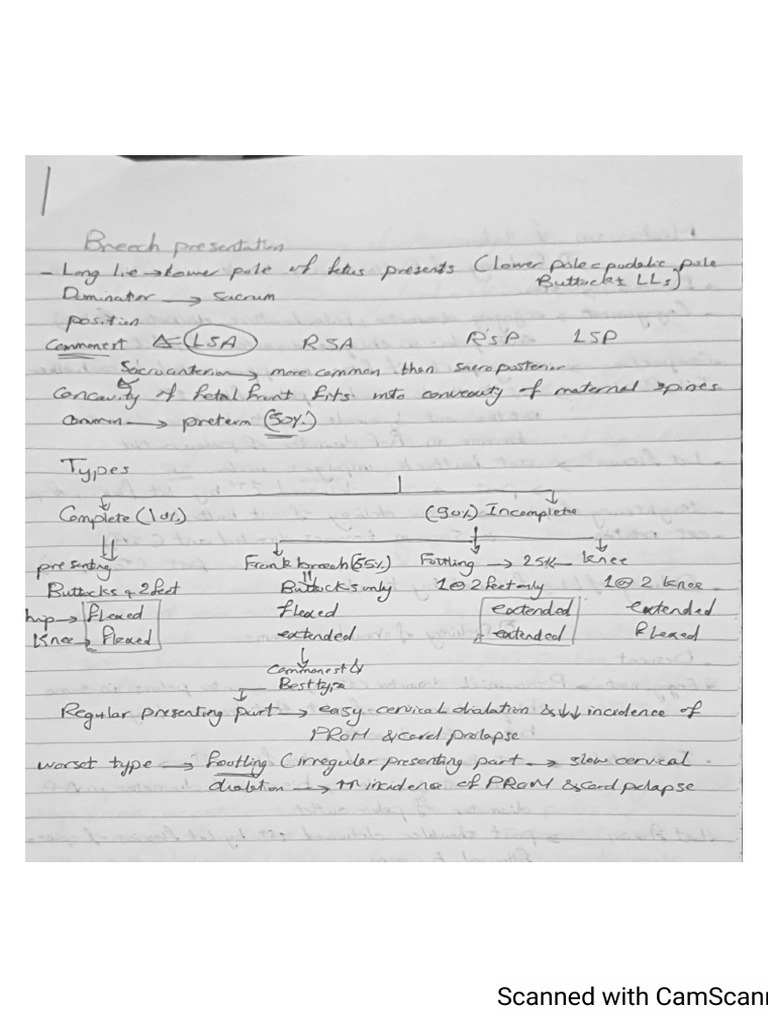 Breech presentation
- Long lie → Lower pole of fetus presents (lower pole = podalic pole
Buttock & LLs)
Diminator → Sacrum
position
Commonest LSA RSA RSP LSP
Sacroanterior → more common than sacroposterior
Concavity of fetal front fits into convexity of maternal spines
Common → preterm (50%)
Types
Complete (10%) (90%) Incomplete
presenting Frank breech (65%) Footling → 25% ← Knee
Buttocks & 2 feet Buttocks only 1 or 2 feet only 1 or 2 knee
hip → flexed flexed extended extended
Knee → flexed extended extended flexed
Commonest &
Best type
Regular presenting part → easy cervical dialation & ↓↓ incidence of
PROM & cord prolapse
worset type → footling (irregular presenting part → slow cervical
dialation → ↑↑ incidence of PROM & cord pelapse
Scanned with CamScann